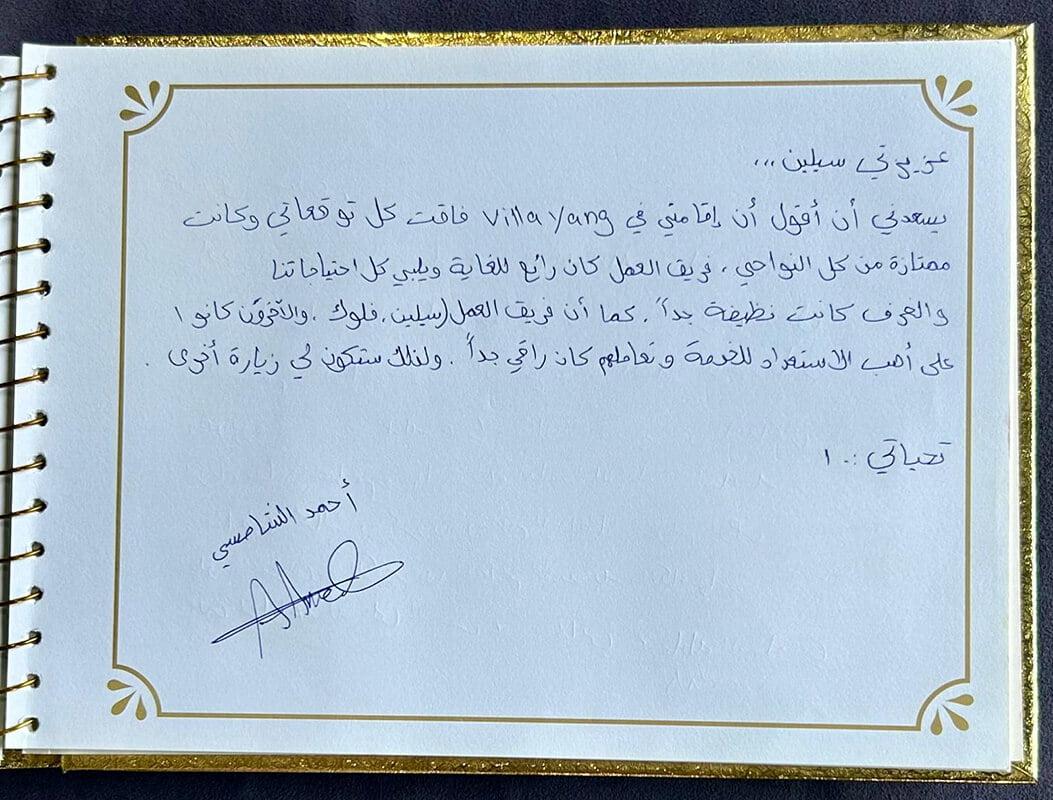 عزيزتي سيلين ...
يسعدني أن أقول أن إقامتي في Villa Yang فاقت كل توقعاتي وكانت
ممتازة من كل النواحي ، فريق العمل كان رائع للغاية ويلبي كل احتياجاتنا
والغرف كانت نظيفة جداً . كما أن فريق العمل (سيلين ، فلوك ، والآخرون كانوا
على أهب الاستعداد للخدمة وتعاملهم كان راقي جداً . ولذلك ستكون لي زيارة أخرى .
تحياتي :.. ١
أحمد الشامسي
Ahmed